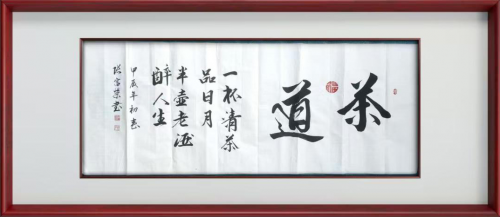 茶道
一杯清茶
品日月
半壶老酒
醉人生
甲辰年初春
张富荣书